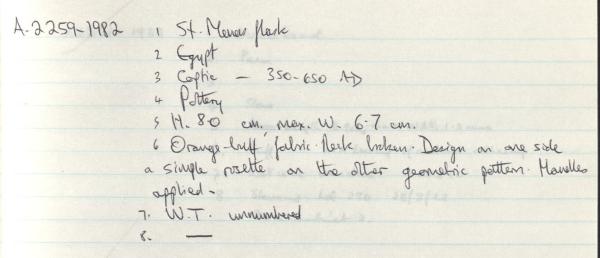 A.2259-1982 1 St. Menas flask
2 Egypt
3 Coptic — 350-650 AD
4 Pottery
5 H. 8.0 cm, max. W. 6.7 cm.
6 Orange-buff fabric. Neck broken. Design on one side
a simple rosette on the other geometric pattern. Handles
applied.
7. W.T. unnumbered
8. —